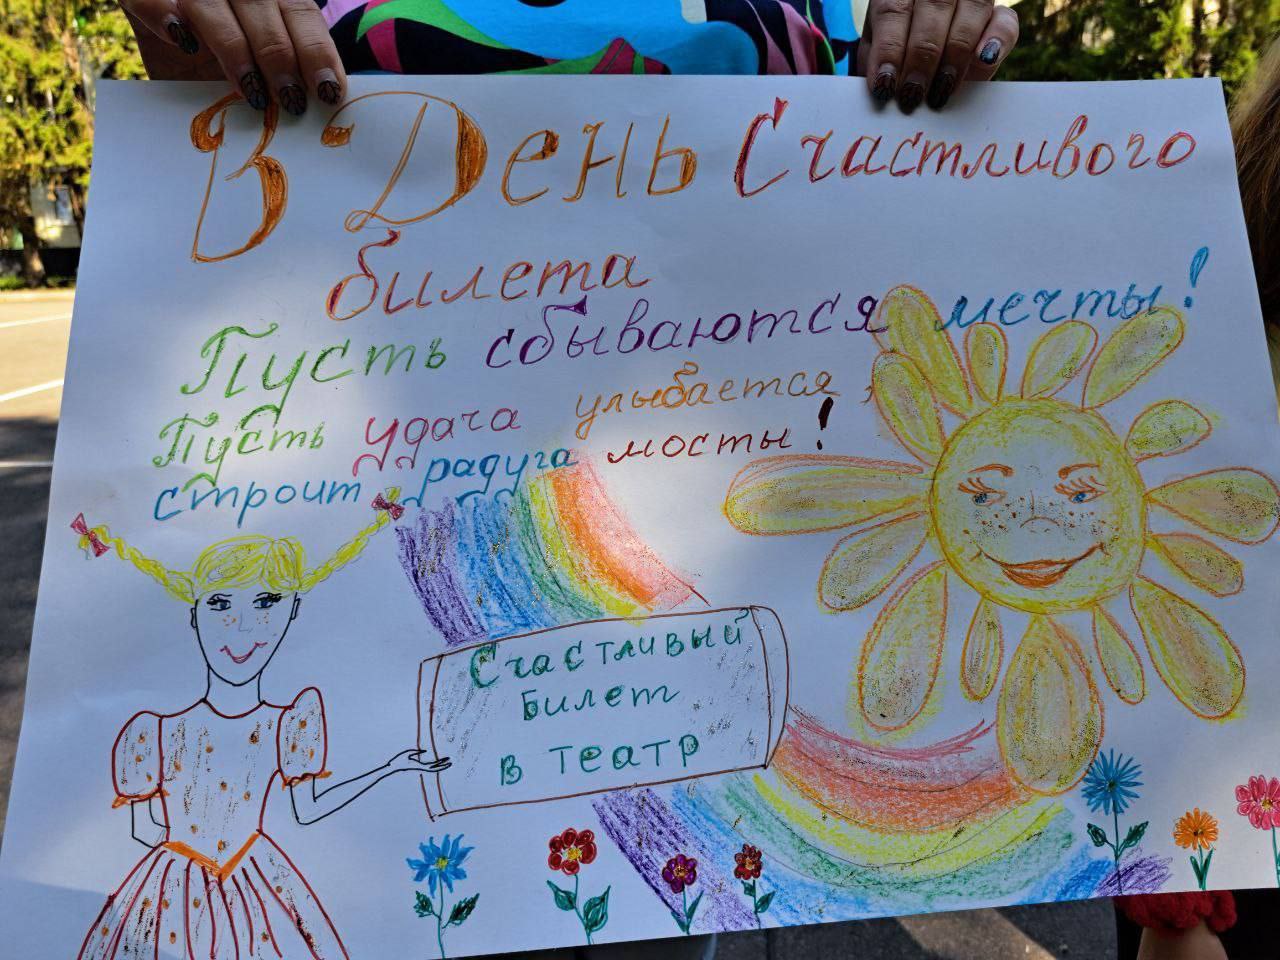 В День Счастливого
билета
Пусть сбываются мечты!
Пусть удача улыбается,
строит радуга мосты!
Счастливый
билет
в театр